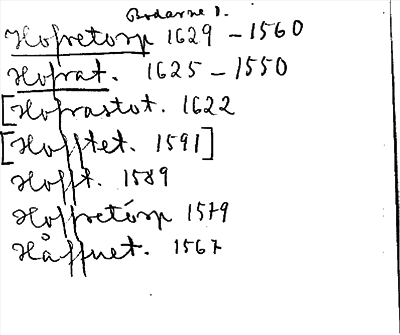 Bodarne 1.
Hofretorp 1629 - 1560
Hofrat. 1625 - 1550
[Hofrastot. 1622
[Hofftet. 1591]
Hofft. 1589
Hoffretórp 1579
Håffnet. 1567